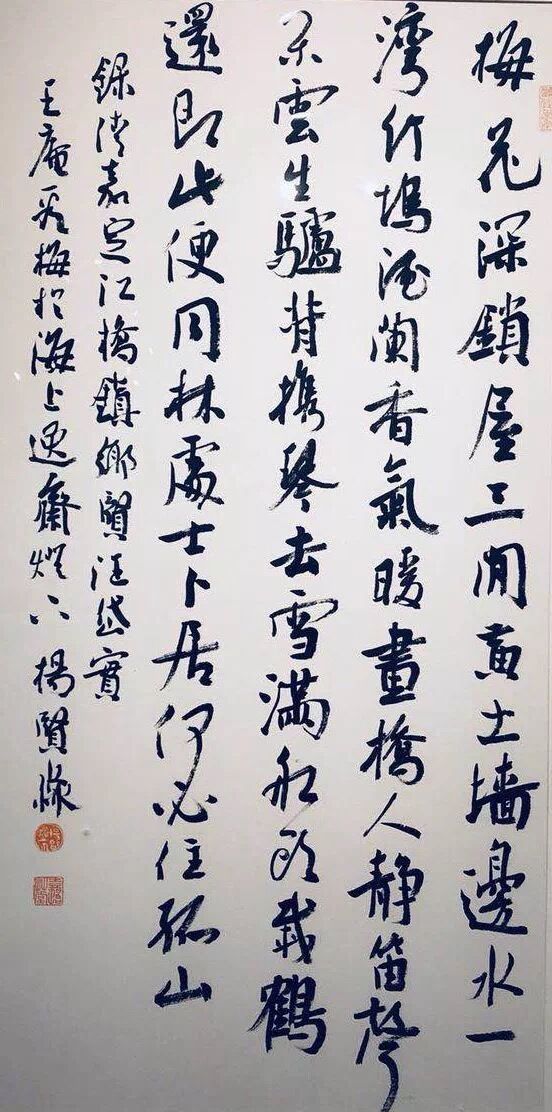 梅花深鎖屋三間黃土墻邊水一
灣竹塢酒闌香氣暖畫橋人靜笛聲
閑雲生驢背携琴去雪滿船頭載鶴
還即此便同林處士卜居何必住孤山
錄清嘉定江橋鎮鄉賢汪岱實
王庵看梅於海上逸齋燈下 楊賢淼